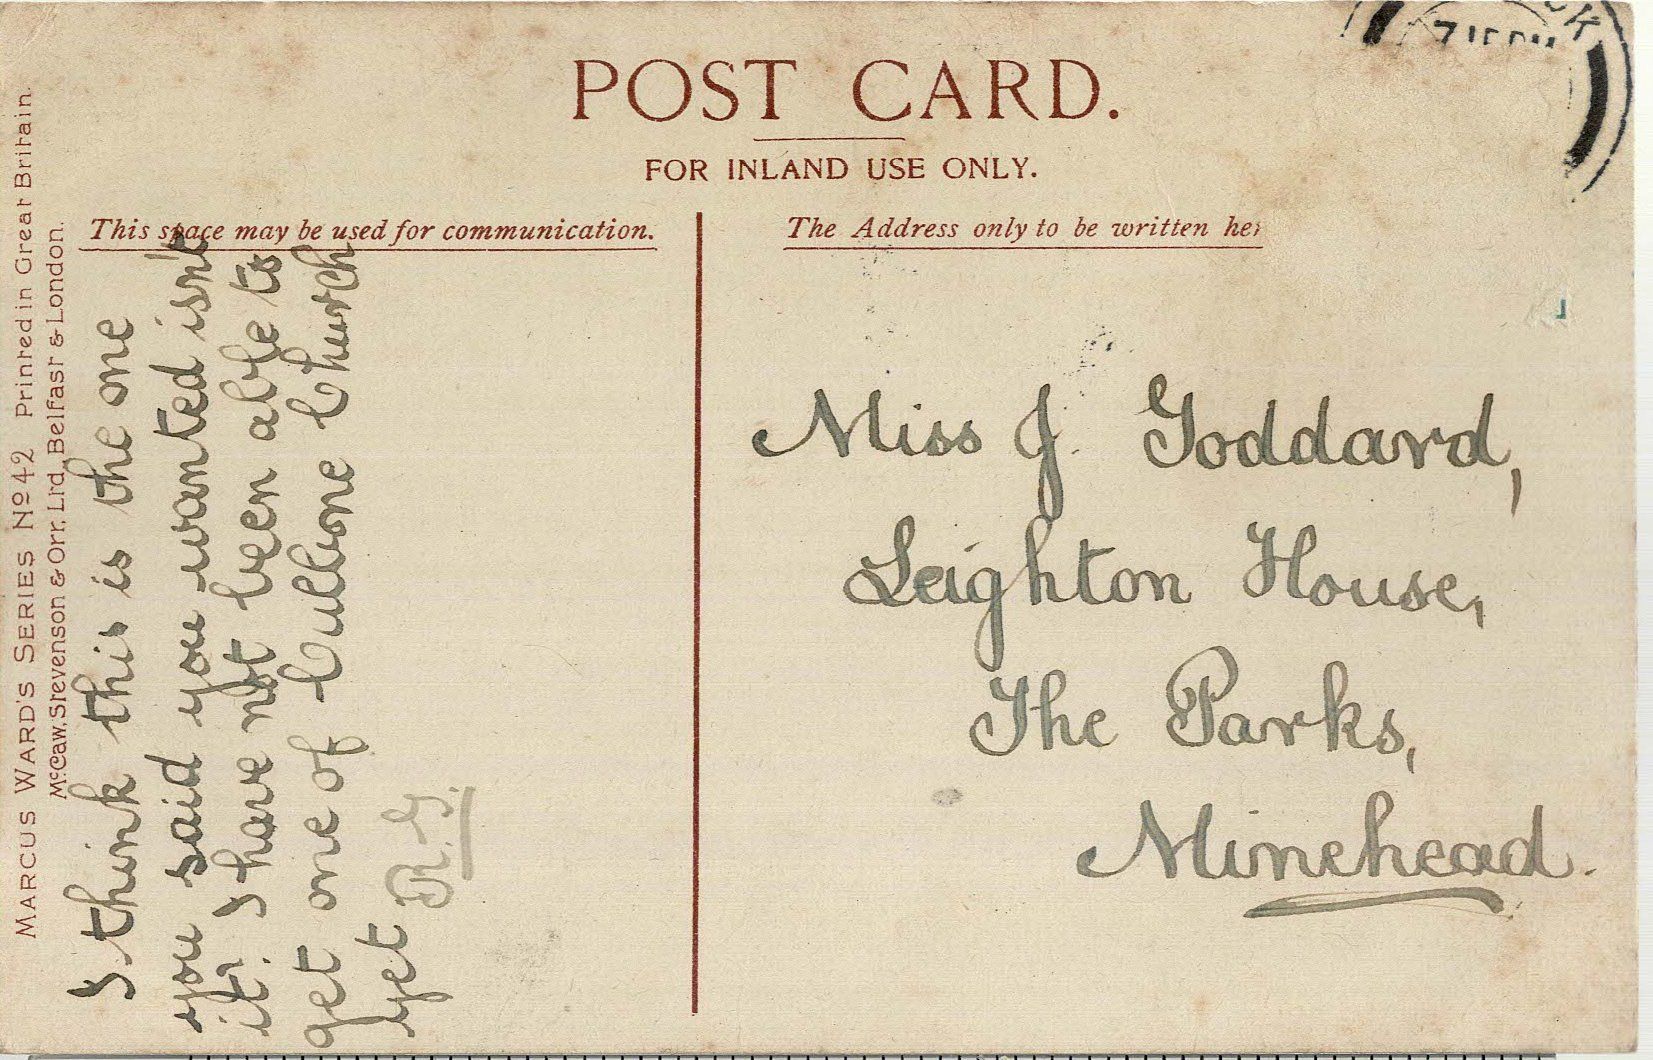 POST CARD.
FOR INLAND USE ONLY.
This space may be used for communication.
The Address only to be written
MARCUS WARD'S SERIES No 42 Printed in Great Britain.
McCaw, Stevenson & Orr, Ltd, Belfast & London.
I think this is the one
you said you wanted isn't
it? I have not been able to
get one of Culbone Church
yet R. G.
Miss J. Goddard,
Leighton House,
The Parks,
Minehead.